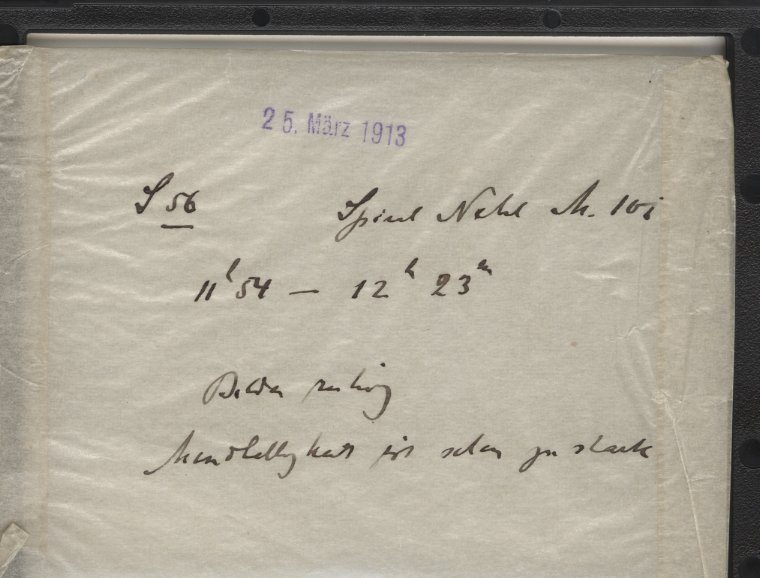 25. März 1913
S 56 Spiral Nebel M. 101
11h 54 — 12h 23m
Bilder ruhig
Mondhelligkeit ist schon zu stark